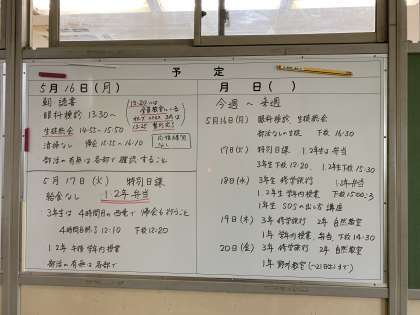 予定
5月16日(月)
朝 読書
眼科検診 13:30~
13:20には
13:25
生徒総会 14:55~15:50
清掃なし 帰会 15:55~16:10
部活の有無は各部で確認すること
5月17日(火) 特別日課
給食なし 1.2年弁当
3年生は4時間目の
4時間目終了 12:10 下校 12:20
1.2年 午後 学年内授業
部活の有無は各部で
月 日( )
今週~来週
5月16日(月) 眼科検診 生徒総会
部活なし生徒 下校 16:30
17日(火) 特別日課 1.2年生は弁当
3年生下校 12:20 1.2年生下校 15:30
18日(水) 3年 修学旅行 1.2年弁当
1.2年生 学年内授業 下校 15:00
1年生 SOSの出し方 講座
19日(木) 3年 修学旅行 2年 自然教室
1年 学年内授業、弁当、下校 14:30
20日(金) 3年 修学旅行 2年 自然教室
1年 野外教室 (~21日まで)